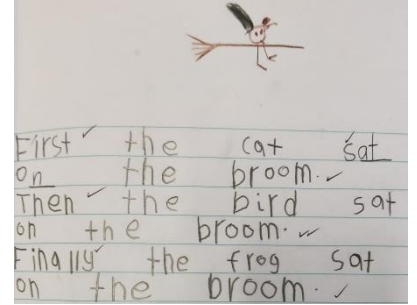 First the cat sat
on the broom.
Then the bird sat
on the broom.
Finally the frog sat
on the broom.